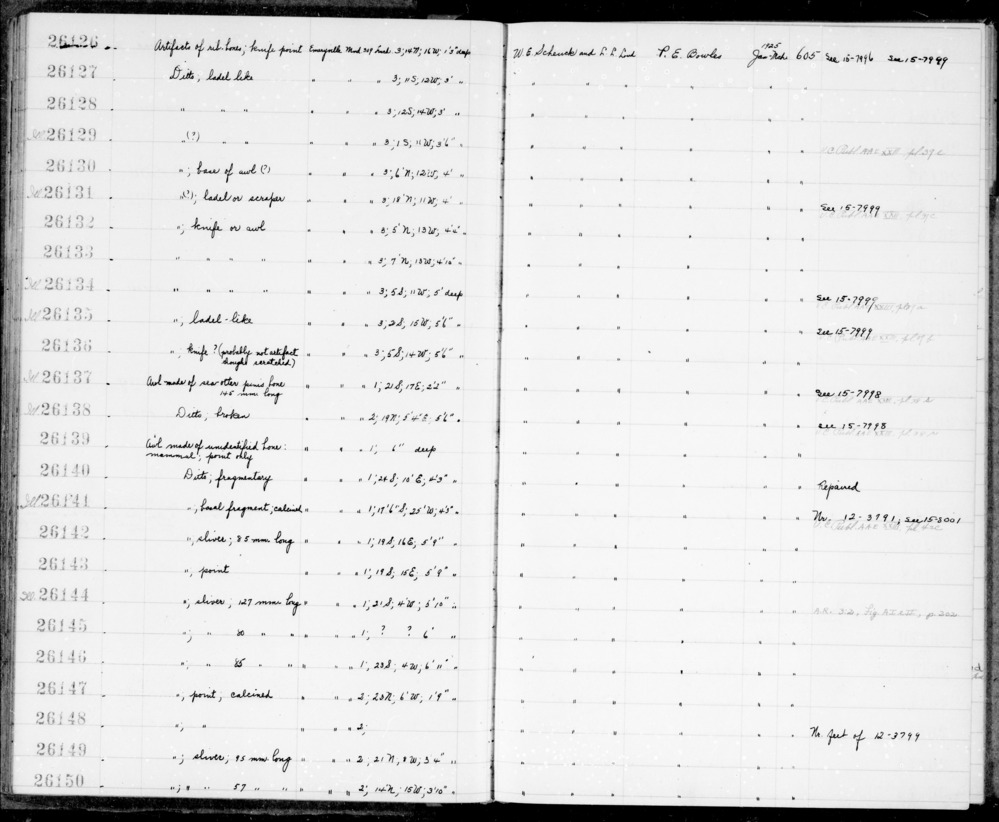 26126 Artifacts of rib-bones; knife point Emeryville Md 309 3; 14N; 16W; 1'3" deep W. E. Schenck and L. L. Loud P. E. Bowles 1925 605 See 15-7996 See 15-7999
26127 Ditto, ladel like " " 3; 11S; 12W; 3' " " " " " " "
26128 " " " " " 3; 12S; 14W; 3' " " " " " " "
26129 " (?) " " 3; 1S; 11W; 3'6" " " " " " " "
26130 "; base of awl (?) " " 3; 6'N; 12W; 4' " " " " " " "
26131 "(?); ladel or scraper " " 3; 18'N; 11W; 4' " " " " " " " See 15-7999
26132 "; knife or awl " " 3; 5'N; 13W; 4'4" " " " " " " "
26133 " " " " " " 3; 7'N; 13W; 4'10" " " " " " " "
26134 " " " " " " 3; 5S; 11W; 5' deep " " " " " " See 15-7999
26135 "; ladel-like " " 3; 2S; 15W; 5'6" " " " " " " " See 15-7999
26136 "; knife? (probably not artifact
though scratched) " " 3; 5S; 14W; 5'6" " " " " " " "
26137 Awl made of sea otter penis bone
145 mm long " " 1; 21S; 17E; 2'2" " " " " " " " See 15-7998
26138 Ditto, broken " " 2; 19N; 5'4"E; 5'6" " " " " " " " See 15-7998
26139 Awl made of unidentified bone:
mammal; point only " " 1; 6" deep " " " " " "
26140 Ditto; fragmentary " " 1; 24S; 10'E; 4'3" " " " " " " " Repaired
26141 "; basal fragment, calcined " " 1; 17'6"S; 25'W; 4'5" " " " " " " " Nr. 12-3791; See 15-8001
26142 "; sliver; 85 mm long " " 1; 19S, 16E; 5'9" " " " " " " "
26143 "; point " " 1; 19S; 15E; 5'9" " " " " " " "
26144 "; sliver; 127 mm long " " 1; 21S; 4'W; 5'10" " " " " " " "
26145 "; " 80 " " " " 1; ? ? 6' " " " " " " "
26146 "; " 85 " " " " 1; 23S; 4W; 6'11" " " " " " " "
26147 "; point, calcined " " 2; 23N; 6'W; 1'9" " " " " " " "
26148 "; " " " 2; " " " " " " Nr. feet of 12-3799
26149 "; sliver; 95 mm long " " 2; 21N, 8W; 3'4" " " " " " " "
26150 "; " 57 " " " " 2; 14N; 15W; 3'10" " " " " " " "